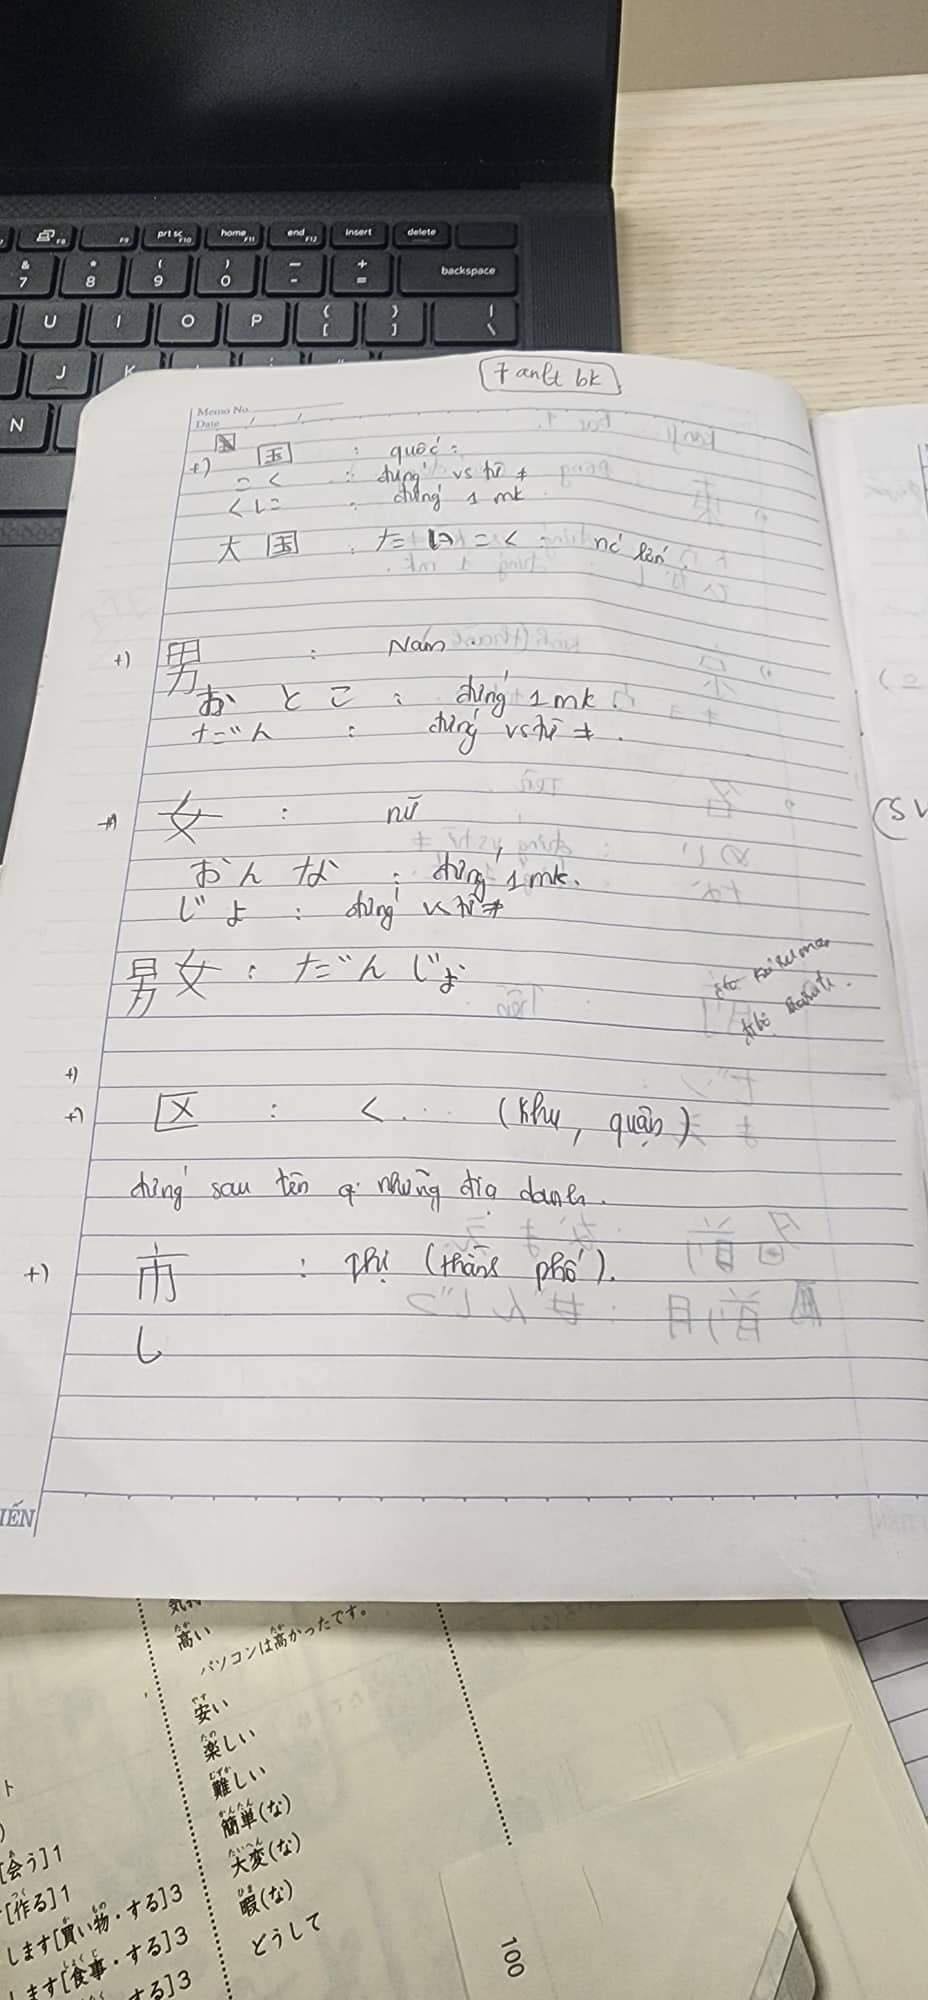 prt sc F10 home F11 end F12 insert delete
& 7 * 8 ( 9 ) 0 — - + = backspace
U I O P { [ } ] | \
J K
N
7 anh bk
Memo No.
Date / /
+) 国 : quốc :
こく : đứng vs từ ≠
くに : đứng 1 mk
大国 : たいこく : nc lớn.
+) 男 : Nam
おとこ : đứng 1 mk.
だん : đứng vs từ ≠.
+) 女 : nữ
おんな : đứng 1 mk.
じょ : đứng vs từ ≠
男女 : だんじょ
+)
+) 区 : く... (khu, quận)
đứng sau tên q. những địa danh.
+) 市 : thị (thành phố).
し
(SV
IẾN
高い
たか
パソコンは高かったです。
たか
安い
やす
楽しい
たの
難しい
むずか
簡単(な)
かんたん
大変(な)
たいへん
暇(な)
ひま
どうして
ト
[会う]1
[作る]1
つく
します[買い物・する]3
か もの
します[食事・する]3
しょくじ
する]3
100